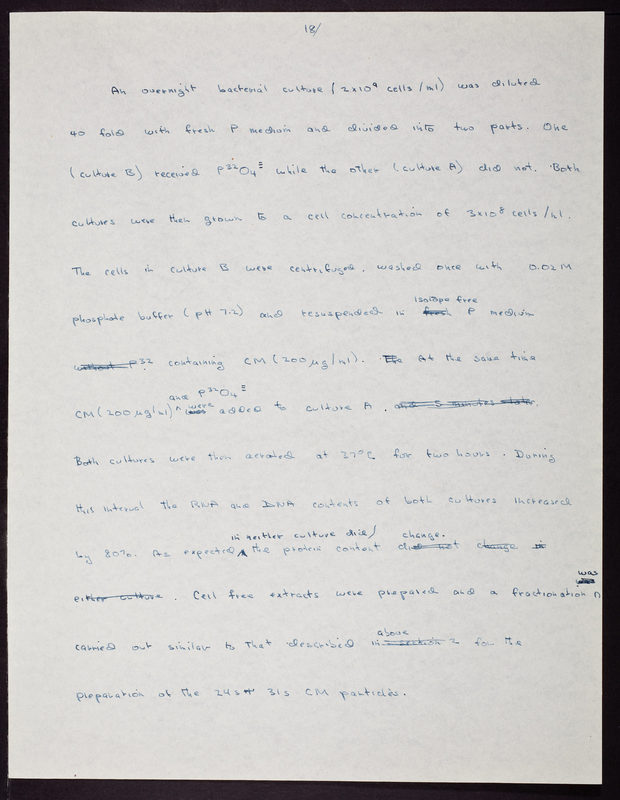 18/
An overnight bacterial culture (2x10⁹ cells/ml) was diluted
40 fold with fresh P medium and divided into two parts. One
(culture B) received P³²O₄≡ while the other (culture A) did not. Both
cultures were then grown to a cell concentration of 3x10⁸ cells/ml.
The cells in culture B were centrifuged, washed once with 0.02M
isotope free
phosphate buffer (pH 7.2) and resuspended in fresh P medium
without P³². containing CM (200 µg/ml). The At the same time
and P³²O₄≡
were
CM (200 µg/ml) ^ was added to culture A. and 5 minutes later.
Both cultures were then aerated at 37°C for two hours. During
this interval the RNA and DNA contents of both cultures increased
in neither culture did change.
by 80%. As expected, the protein content did not change in
was
either culture. Cell free extracts were prepared and a fractionation
above
carried out similar to that described in section 2 for the
preparation of the 24s + 31s CM particles.